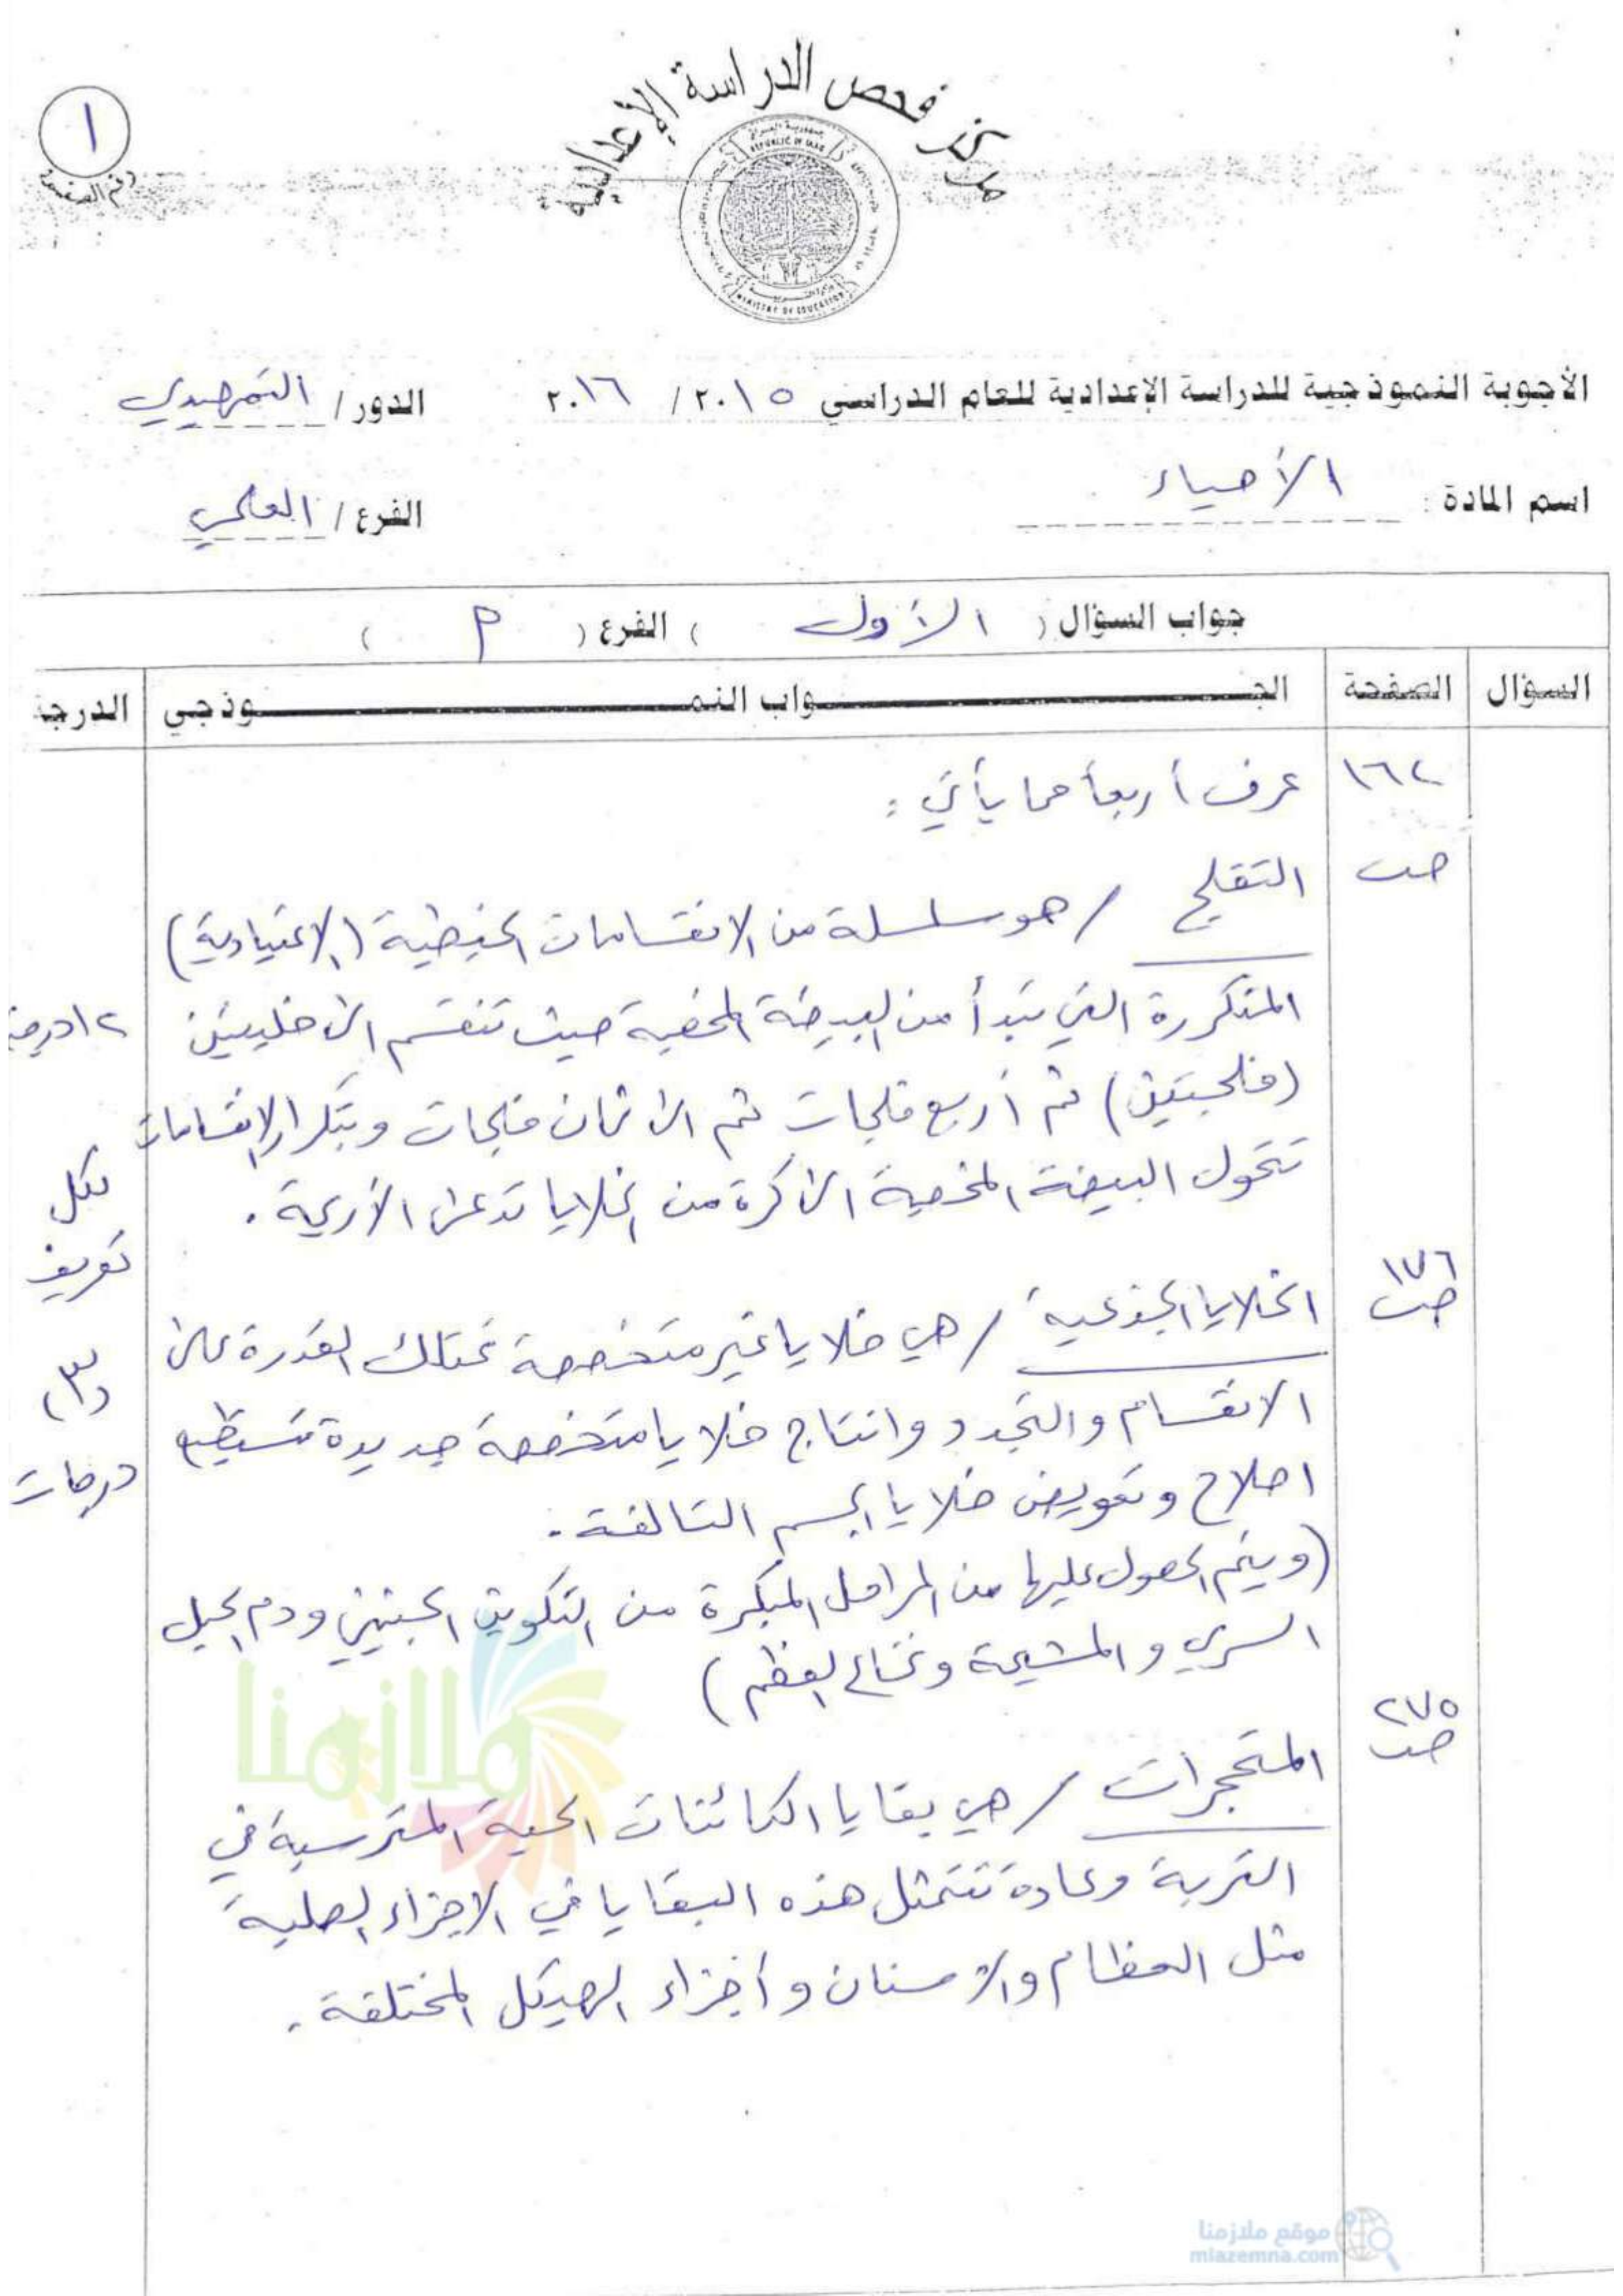 مركز فحص الدراسة الإعدادية
١
رقم الصفحة
REPUBLIC OF IRAQ
MINISTRY OF EDUCATION
الأجوبة النموذجية للدراسة الإعدادية للعام الدراسي ٢٠١٥ / ٢٠١٦ الدور / التمهيدي
اسم المادة : الأحياء الفرع / العلمي
جواب السؤال ( الأول ) الفرع ( م )
السؤال الصفحة الجـــواب النمـــوذجي الدرجة
١٦٢ عرف أربعاً مما يأتي :
صـ التفلج / هو سلسلة من الانقسامات الخيطية (الاعتيادية)
المتكررة التي تبدأ من البيضة المخصبة حيث تنقسم الى خليتين ١٢ درجة
(فلجتين) ثم أربع فلجات ثم الى ثمان فلجات وبتكرار الانقسامات
تتحول البيضة المخصبة الى كرة من الخلايا تدعى الأريمة . لكل
تعريف
١٧٦
صـ الخلايا الجذعية / هي خلايا غير متخصصة تمتلك القدرة على (٣)
الانقسام والتجدد وانتاج خلايا متخصصة جديدة تستطيع درجات
اصلاح وتعويض خلايا الجسم التالفة .
(ويتم الحصول عليها من المراحل المبكرة من التكوين الجنيني ودم الحبل
السري والمشيمة ونخاع العظم)
٢٧٥
صـ المتحجرات / هي بقايا الكائنات الحية المترسبة في
التربة وعادة تتمثل هذه البقايا في الاجزاء الصلبة
مثل العظام والاسنان وأجزاء الهيكل المختلفة .
ملازمنا
موقع ملازمنا
mlazemna.com